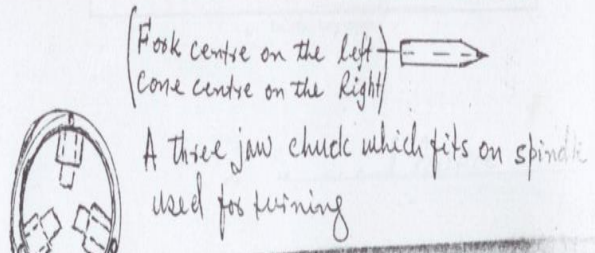 (Fork centre on the left
Cone centre on the Right)
A three jaw chuck which fits on spindle
used for turning